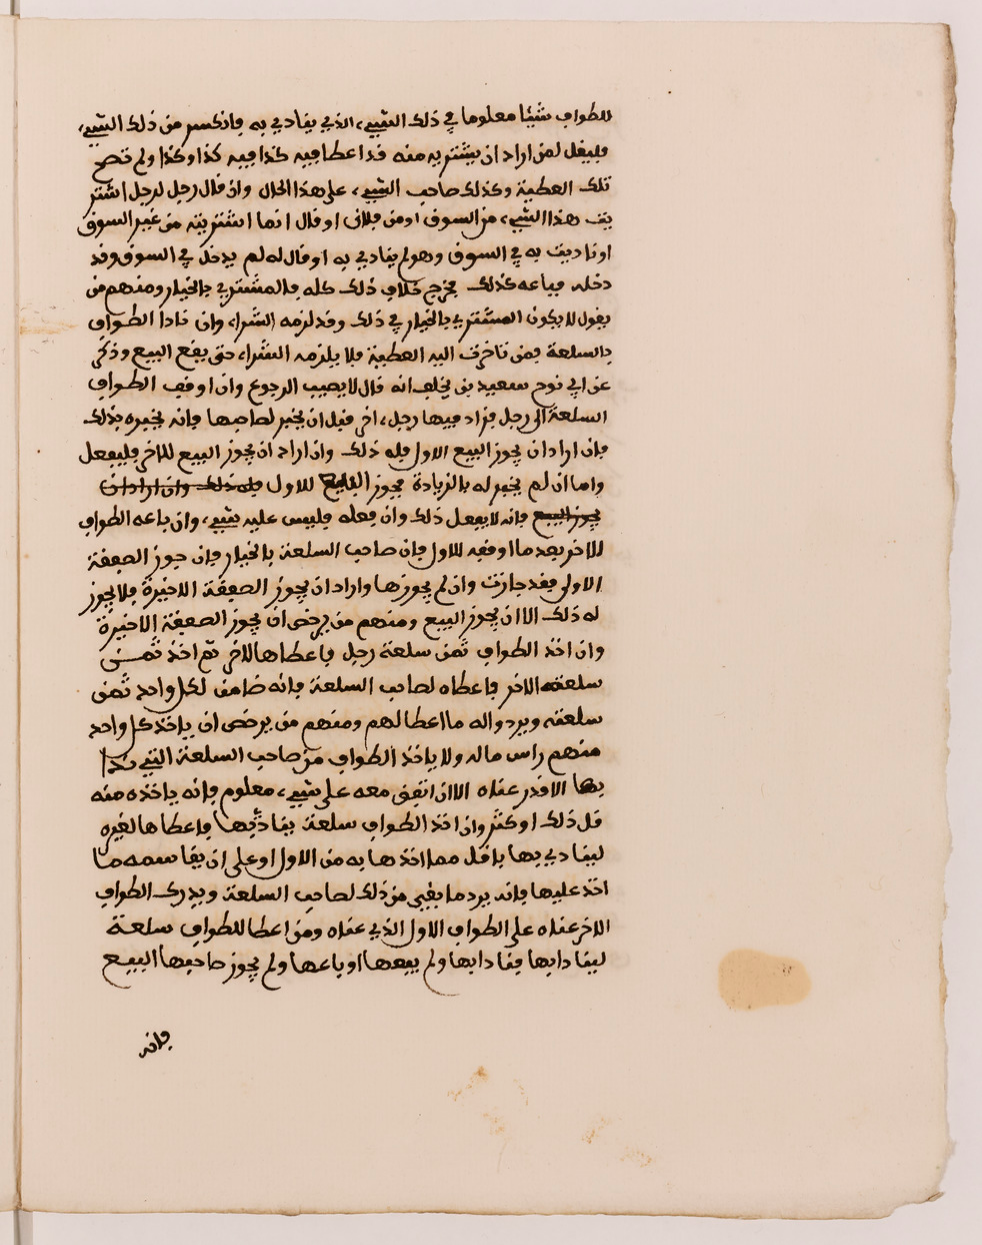 للطواف شيئا معلوما في ذلك الشيء الذي ينادي به فانكسر من ذلك الشيء
فليقل لمن اراد ان يشتريه منه قد اعطا فيه كذا فيه كذا وكذا ولم تصح
تلك العطية وكذلك صاحب الشيء على هذا الحال وان قال رجل لرجل اشتر
يت هذا الشيء من السوق او من فلان او قال انما اشتريته من غير السوق
او ناديت به في السوق وهو لم ينادي به او قال له لم يدخل في السوق وقد
دخله فباعه كذلك فخرج خلاف ذلك كله فالمشتري بالخيار ومنهم من
يقول لا يكون المشتري بالخيار في ذلك وقد لزمه الشراء وان نادا الطواف
بالسلعة فمن تاخرت اليه العطية فلا يلزمه الشراء حتى يقع البيع وذكر
عن ابي نوح سعيد بن يخلف انه قال لا يصيب الرجوع وان اوقف الطواف
السلعة الى رجل فزاد فيها رجل اخر قبل ان يخبر لصاحبها فانه يخبره بذلك
فان اراد ان يجوز البيع الاول فله ذلك وان اراد ان يجوز البيع للاخر فليفعل
واما ان لم يخبر له بالزيادة فجوز البيع للاول فله ذلك وان اراد ان
يجوز البيع فانه لا يفعل ذلك وان فعله فليس عليه شيء وان باعه الطواف
للاخر بعد ما اوقفه للاول فان صاحب السلعة بالخيار فان جوز الصفقة
الاولى فقد جازت وان لم يجوزها واراد ان يجوز الصفقة الاخيرة فلا يجوز
له ذلك الا ان يجوز البيع ومنهم من يرخص ان يجوز الصفقة الاخيرة
وان اخذ الطواف ثمن سلعة رجل فاعطاها للاخر ثم اخذ ثمن
سلعة الاخر فاعطاه لصاحب السلعة فانه ضامن لكل واحد ثمن
سلعته ويردوا له ما اعطا لهم ومنهم من يرخص ان ياخذ كل واحد
منهم راس ماله ولا ياخذ الطواف من صاحب السلعة التي نادا
بها الا قدر عناه الا ان اتفق معه على شيء معلوم فانه ياخذه منه
قل ذلك او كثر وان اخذ الطواف سلعة ينادي بها فاعطاها لغيره
لينادي بها باقل مما اخذها به من الاول او على ان يقاسمه ما
اخذ عليها فانه يرد ما بقي من ذلك لصاحب السلعة ويدرك الطواف
الاخر عناه على الطواف الاول الذي عناه ومن اعطا للطواف سلعة
لينادا بها فنادا بها ولم يبعها او باعها ولم يجوز صاحبها البيع
فانه